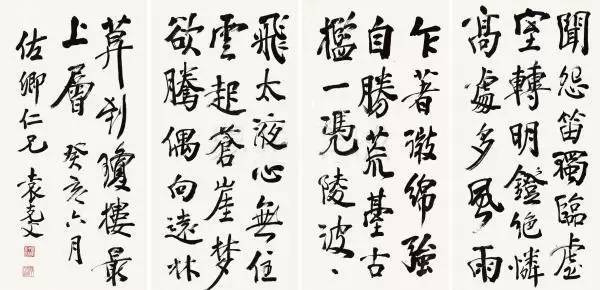 聞怨笛獨臨虛
室轉明鐙絕憐
高處多風雨
乍著微綿強
自勝荒臺古
檻一憑陵波
飛太液心無住
雲起蒼崖夢
欲騰偶向遠林
莫到瓊樓最
上層 癸亥六月
佐卿仁兄 袁克文